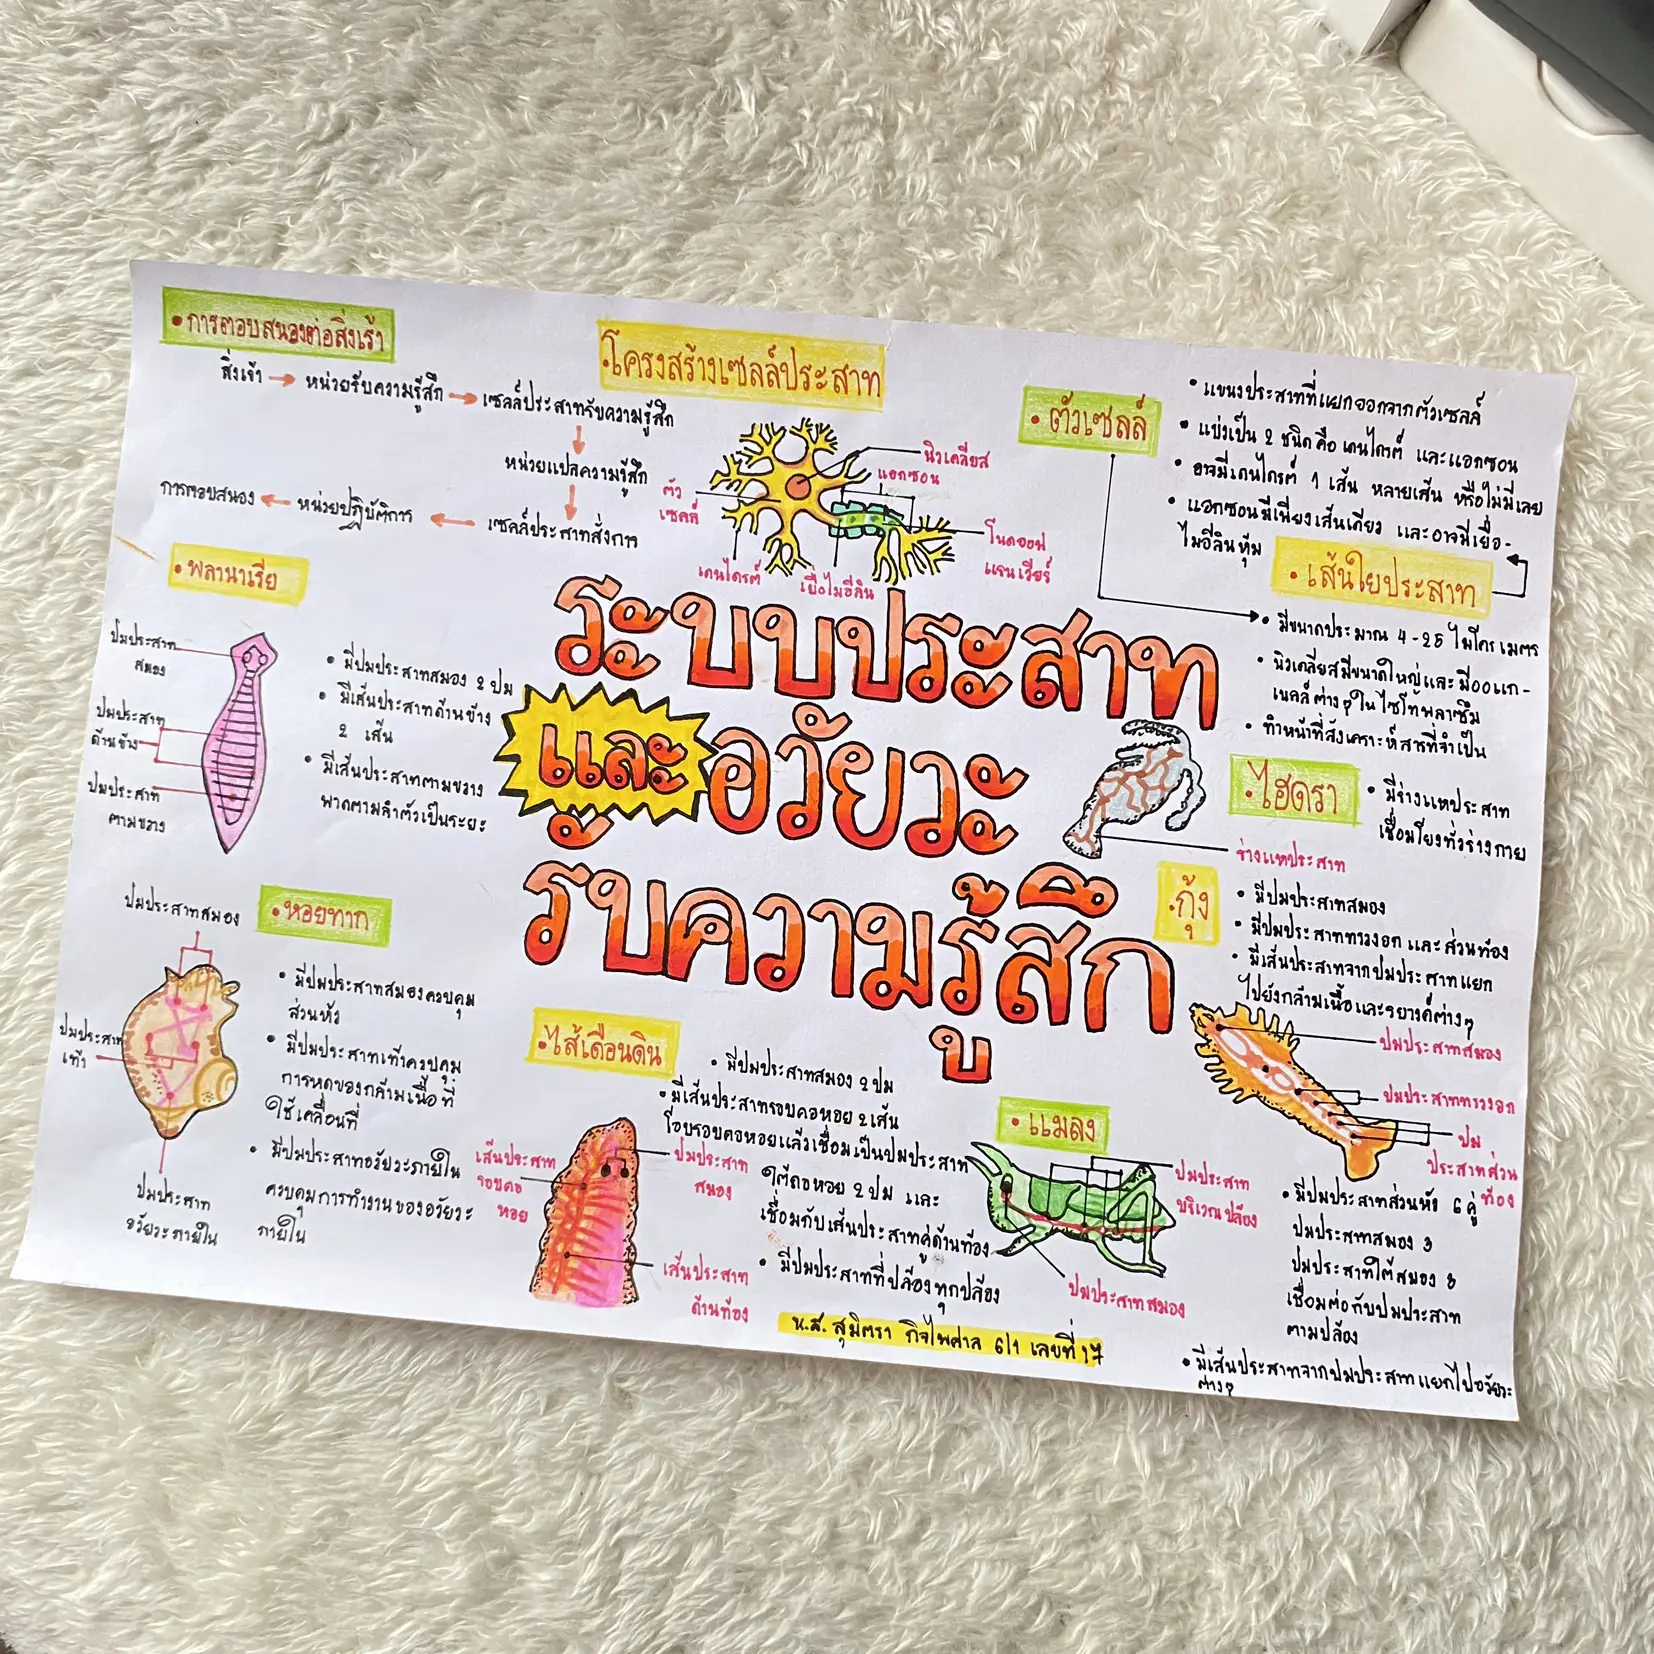 • การตอบสนองต่อสิ่งเร้า
สิ่งเร้า → หน่วยรับความรู้สึก → เซลล์ประสาทรับความรู้สึก
หน่วยแปลความรู้สึก
การตอบสนอง ← หน่วยปฏิบัติการ ← เซลล์ประสาทสั่งการ
• โครงสร้างเซลล์ประสาท
นิวเคลียส
แอกซอน
ตัว
เซลล์
โนดออฟ
แรนเวียร์
เดนไดรต์
เยื่อไมอีลิน
• ตัวเซลล์
• แขนงประสาทที่แยกออกจากตัวเซลล์
• แบ่งเป็น 2 ชนิด คือ เดนไดรต์ และแอกซอน
• อาจมีเดนไดรต์ 1 เส้น หลายเส้น หรือไม่มีเลย
• แอกซอนมีเพียงเส้นเดียว และอาจมีเยื่อ-
ไมอีลินหุ้ม
• เส้นใยประสาท
• มีขนาดประมาณ 4-25 ไมโครเมตร
• นิวเคลียสมีขนาดใหญ่และมีออแก-
เนลล์ต่างๆในไซโทพลาซึม
• ทำหน้าที่สังเคราะห์สารที่จำเป็น
ระบบประสาท
และอวัยวะ
รับความรู้สึก
• พลานาเรีย
ปมประสาท
สมอง
ปมประสาท
ด้านข้าง
ปมประสาท
ตามขวาง
• มีปมประสาทสมอง 2 ปม
• มีเส้นประสาทด้านข้าง
2 เส้น
• มีเส้นประสาทตามขวาง
พาดตามลำตัวเป็นระยะ
• ไฮดรา
• มีร่างแหประสาท
เชื่อมโยงทั่วร่างกาย
ร่างแหประสาท
• กุ้ง
• มีปมประสาทสมอง
• มีปมประสาททรวงอก และส่วนท้อง
• มีเส้นประสาทจากปมประสาทแยก
ไปยังกล้ามเนื้อและรยางค์ต่างๆ
ปมประสาทสมอง
ปมประสาททรวงอก
ปม
ประสาทส่วน
ท้อง
• หอยทาก
ปมประสาทสมอง
ปมประสาท
เท้า
ปมประสาท
อวัยวะภายใน
• มีปมประสาทสมองควบคุม
ส่วนหัว
• มีปมประสาทเท้าควบคุม
การหดของกล้ามเนื้อที่
ใช้เคลื่อนที่
• มีปมประสาทอวัยวะภายใน
ควบคุมการทำงานของอวัยวะ
ภายใน
• ไส้เดือนดิน
• มีปมประสาทสมอง 2 ปม
• มีเส้นประสาทรอบคอหอย 2 เส้น
โอบรอบคอหอยแล้วเชื่อมเป็นปมประสาท
ใต้คอหอย 2 ปม และ
เชื่อมกับเส้นประสาทคู่ด้านท้อง
• มีปมประสาทที่ปล้องทุกปล้อง
เส้นประสาท
รอบคอ
หอย
ปมประสาท
สมอง
เส้นประสาท
ด้านท้อง
• แมลง
ปมประสาท
บริเวณปล้อง
ปมประสาทสมอง
• มีปมประสาทส่วนหัว 6 คู่
ปมประสาทสมอง 3
ปมประสาทใต้สมอง 3
เชื่อมต่อกับปมประสาท
ตามปล้อง
• มีเส้นประสาทจากปมประสาทแยกไปอวัยวะ
ต่างๆ
น.ส. สุมิตรา กิจไพศาล 6/1 เลขที่ 17